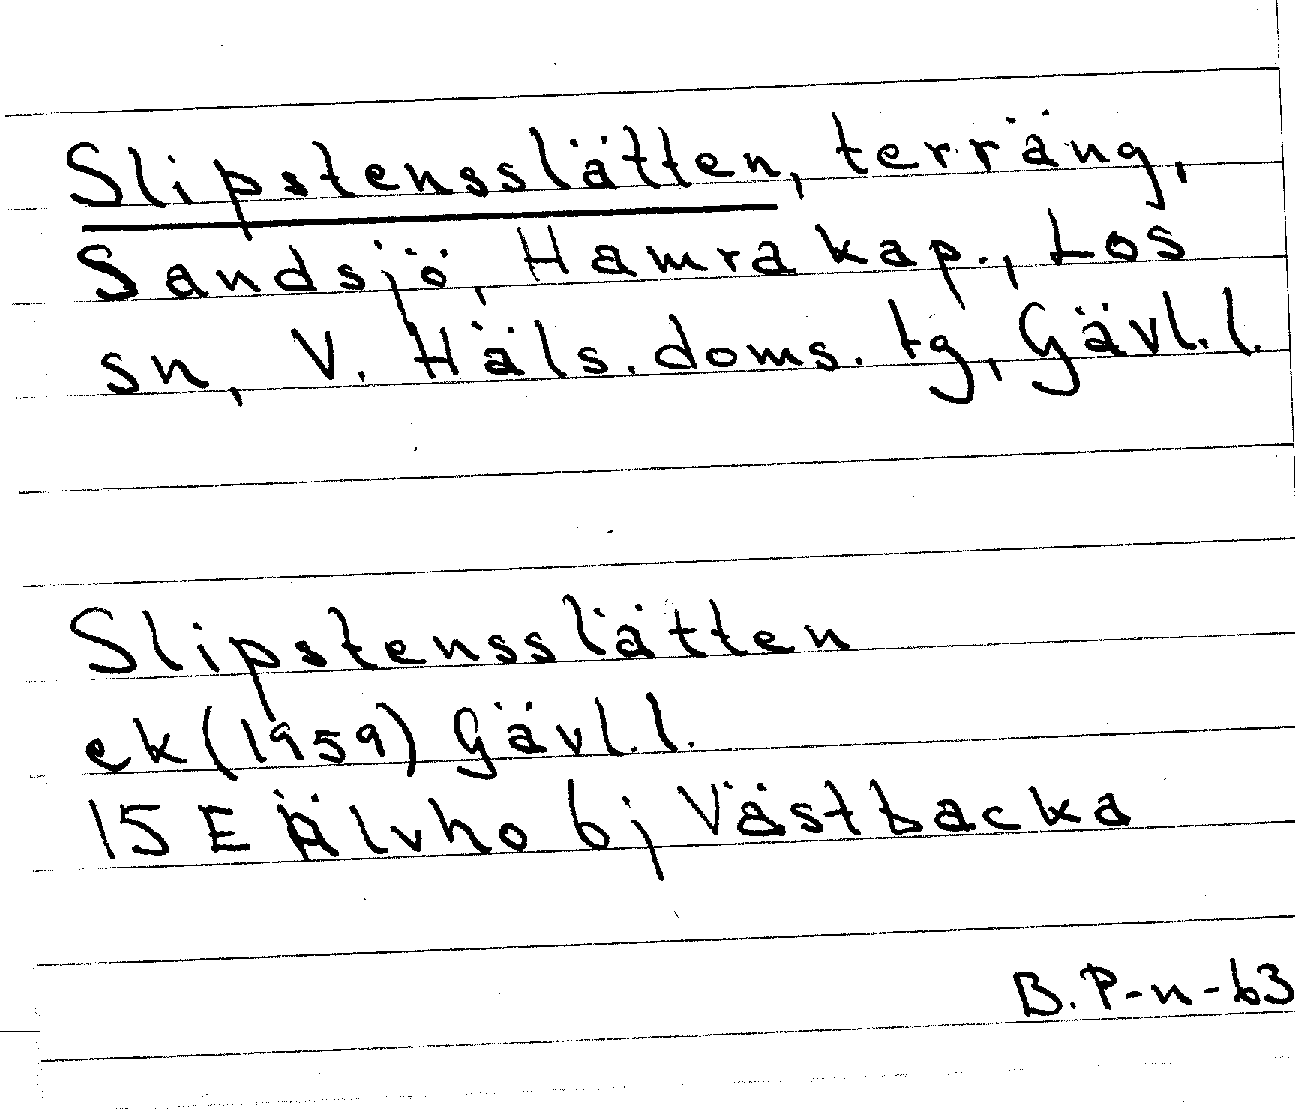 Slipstensslätten, terräng,
Sandsjö, Hamra kap., Los
sn, V. Häls. doms. tg, Gävl. l.
Slipstensslätten
ek (1959) Gävl. l.
15 E Älvho 6j Västbacka
B. P-n-63